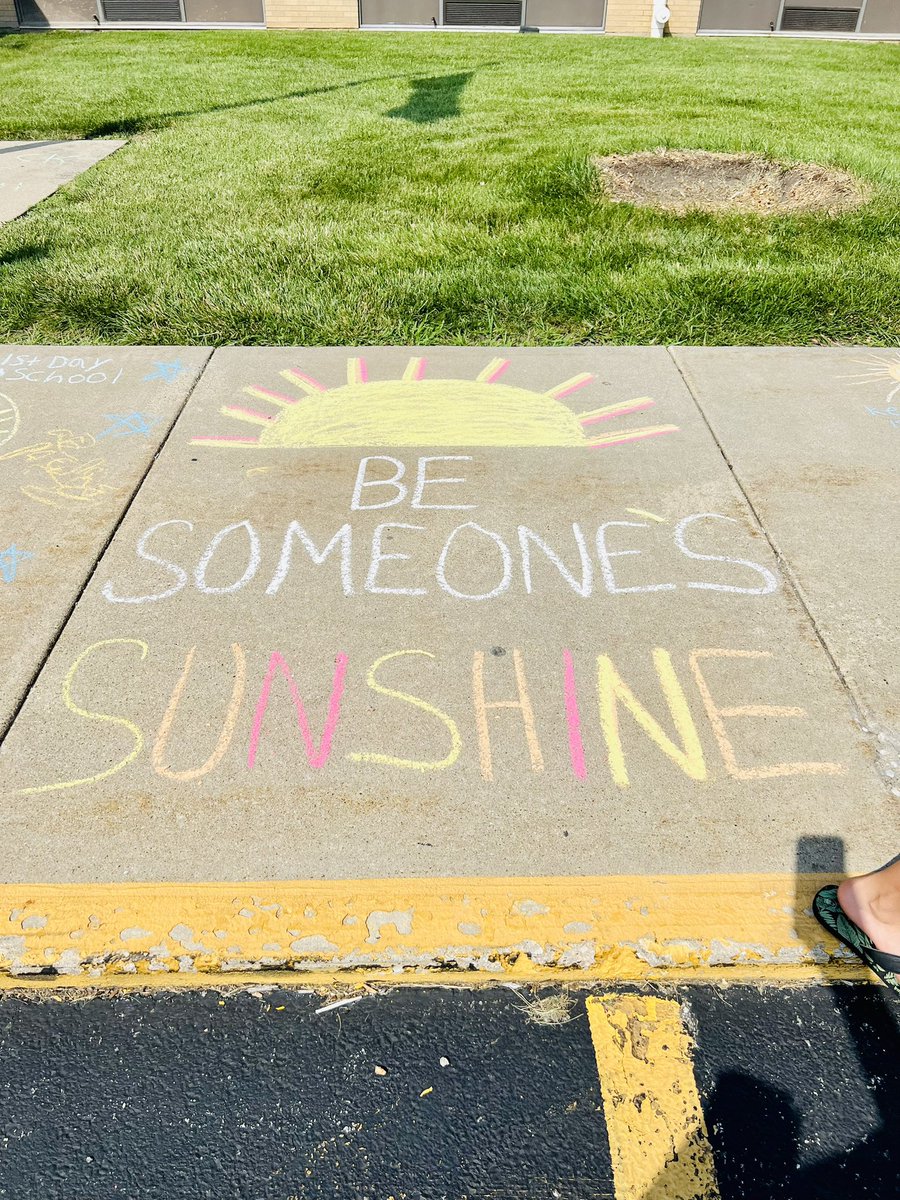 1st Day
School
BE
SOMEONES
SUNSHINE